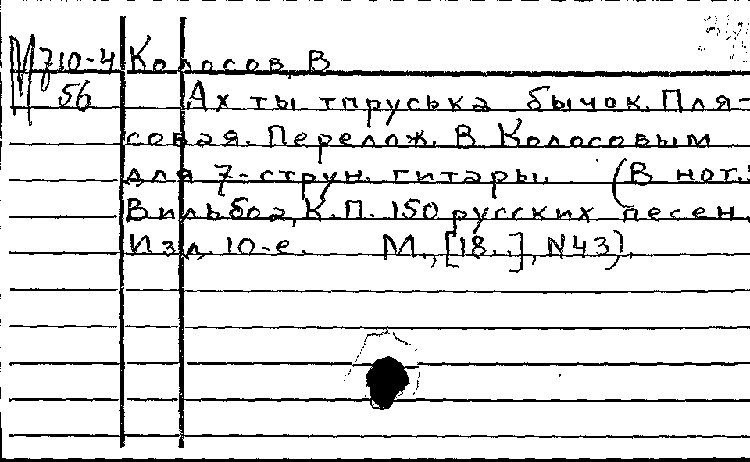 М 710-4 Колосов, В
56 Ах ты тпруська бычок. Пля-
совая. Перелож. В Колосовым
для 7-струн. гитары. (В нот.:
Вильбоа, К.П. 150 русских песен.
Изд. 10-е. М., [18..], N43).